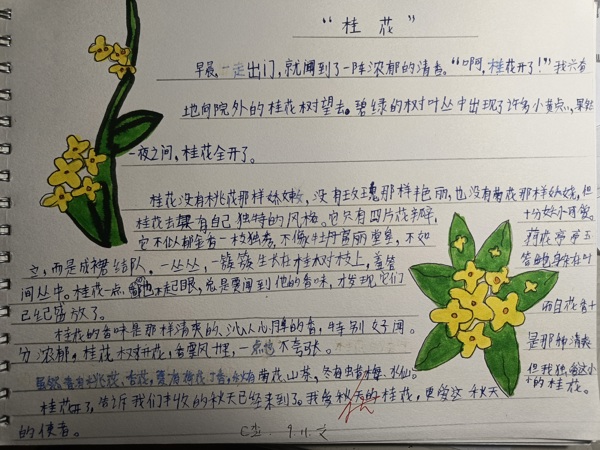 “桂花”
早晨，一走出门，就闻到了一阵浓郁的清香。“啊，桂花开了！”我兴奋
地向院外的桂花树望去。碧绿的树叶丛中出现了许多小黄点，果然
一夜之间，桂花全开了。
桂花没有桃花那样娇嫩，没有玫瑰那样艳丽，也没有荷花那样妖娆，但
桂花去有自己独特的风格。它只有四片花瓣，十分娇小可爱。
它不似郁金香一枝独秀，不像牡丹富丽堂皇，不如
而是成裙结队，一丛丛，一簇簇生长在桂树枝上，
间丛中。桂花一点也不起眼，总是要闻到他的香味，才发现它们
已经露放了。而且花香十
桂花的香味是那样清爽的、沁人心脾的香，特别好闻。是那种清爽
分浓郁，桂花树开花，香飘风里，一点也不夸张。
荷花丁香，秋有菊花，山茶，冬有虫昔梅，水仙。但我独爱这小
桂花开了，告诉我们丰收的秋天已经来到了。我爱秋天的桂花，更爱这秋天
的使者。
9.11.